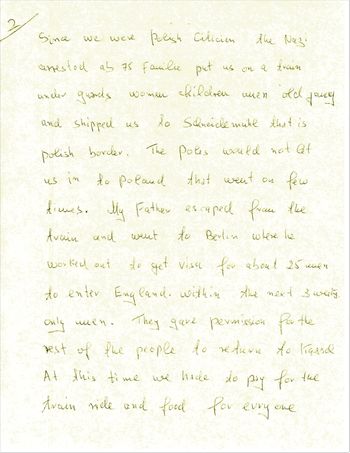 2
Since we were Polish Citicien the Nazi
arrested ab 75 Familie put us on a train
under guards women children men old young
and shipped us to Schneidemuhl that is
polish border. The Poles would not let
us in to Poland that went on few
times. My Father escaped from the
train and went to Berlin where he
worked out to get visa for about 25 men
to enter England. within the next 3 weeks
only men. They gave permission for the
rest of the people to return to Kassel
At this time we hade to pay for the
train ride and food for everyone